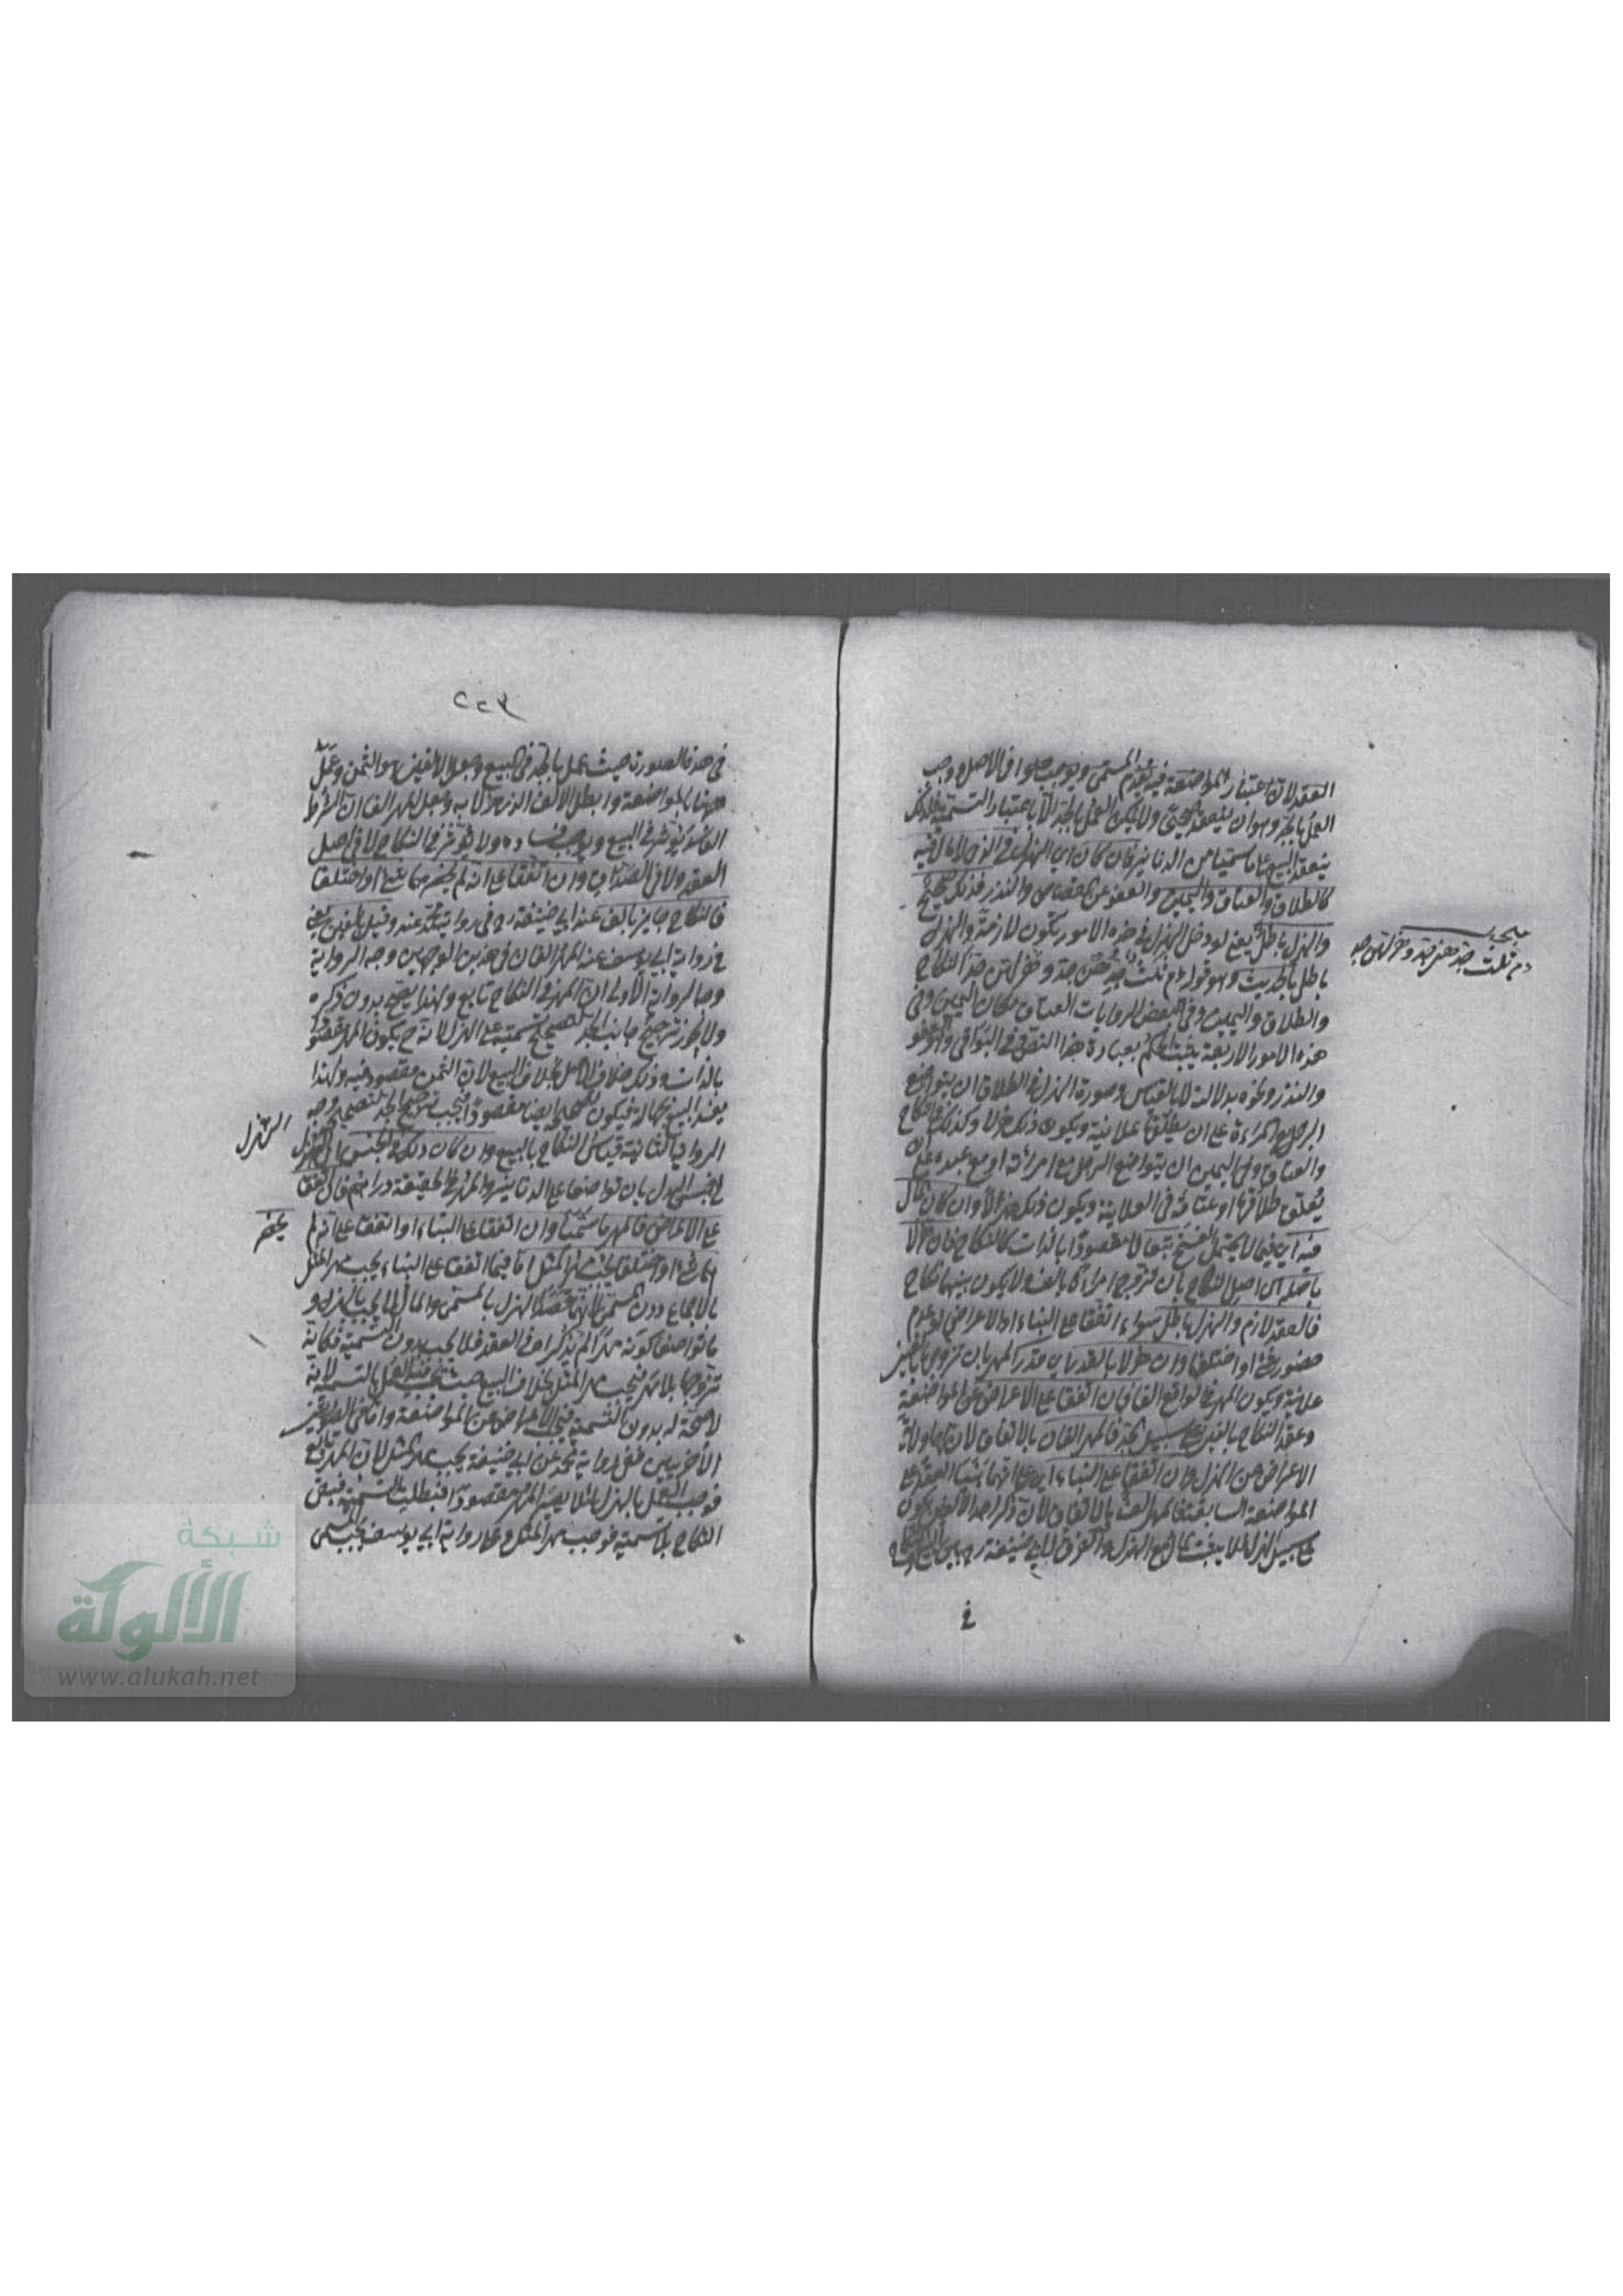 العقد لان اعتبار المواضعة فيه يعدم المسمى ويوجب خلوا في الاصل وجب
العمل بالجد وهو ان ينعقد ولا يمكن العمل بالجد الا باعتبار التسمية فلذلك
ينعقد البيع على ما سميا من الدنانير فان كان اي الهزل في الذي لا مال فيه
كالطلاق والعتاق واليمين والعفو عن القصاص والنذر فذلك صحيح
والهزل باطل يعني لو دخل الهزل في هذه الامور تكون لازمة والهزل
باطل بالحديث وهو قوله ءم ثلث جدهن جد وهزلهن جد النكاح
والطلاق واليمين وفي بعض الروايات العتاق مكان اليمين وفي
هذه الامور الاربعة يثبت الحكم بعبارة هذا النص وفي البواقي وهو العفو
والنذر ونحوه بدلالته لا بالقياس وصورة الهزل في الطلاق ان يتواضع
الرجل والمراءة على ان يطلقها علانية ويكون ذلك هزلا وكذلك في النكاح
والعتاق وفي اليمين ان يتواضع الرجل مع امرأته او مع عبده على ان
يعلق طلاقها او عتاقه في العلانية ويكون ذلك هزلا وان كان المال
فيه اي فيما لا يحتمل الفسخ تبعا لا مقصودا بالذات كالنكاح فان هزلا
باصله اى اصل النكاح بان تزوج امراة بالف ولا يكون بينهما نكاح
فالعقد لازم والهزل باطل سواء اتفقا على البناء او الاعراض او عدم
حضور شئ او اختلفا وان هزلا بالقدر اي قدر المهر بان تزوجها بالفين
علانية ويكون المهر في الواقع الفا فان اتفقا على الاعراض عن المواضعة
وعقد النكاح بالفين على سبيل الجد فالمهر الفان بالاتفاق لان لهما ولاية
الاعراض عن الهزل وان اتفقا على البناء اي على انهما بنيا العقد على
المواضعة السابقة فالمهر الف بالاتفاق لان ذكر احد الالفين يكون
على سبيل الهزل فلا يثبت المال مع الهزل والفرق لابي حنيفة رح بين البيع والنكاح
في
صحيحين
ءم ثلث جدهن جد وهزلهن جد
٢٢٤
في هذه الصورة حيث عمل بالجد في البيع وجعل الالفين هو الثمن وعمل
ههنا بالمواضعة وابطل الالف الذي هزلا به وجعل المهر الفا ان الشرط
الفاسد يؤثر في البيع ويوجب فساده ولا يؤثر في النكاح لا في اصل
العقد ولا في الصداق وان اتفقا على انه لم يحضرهما شئ او اختلفا
فالنكاح جايز بالف عند ابي حنيفة رح في رواية محمد عنه وقيل بالفين يعني
في رواية ابي يوسف عنه المهر الفان في هذين الوجهين وجه الرواية
وجه الرواية الاولى ان المهر في النكاح تابع ولهذا يصح بدون ذكره
ولا يجوز ترجيح جانب الجد لتصحيح تسميته على الهزل لانه ح يكون المهر مقصودا
بالذات وذلك خلاف الاصل بخلاف البيع لان الثمن مقصود فيه ولهذا
يفسد البيع بجهالته فيكون تصحيحه ايضا مقصودا فيجب ترجيح الجد لتصحيحه وجه
الرواية الثانية قياس النكاح بالبيع وان كان ذلك في الجنس
في جنس البدل بان تواضعا على الدنانير والمهر في الحقيقة دراهم فان اتفقا
على الاعراض فالمهر ما سميا وان اتفقا على البناء او اتفقا على انه لم
شئ او اختلفا يجب مهر المثل اما فيما اتفقا على البناء يجب مهر المثل
بالاجماع دون المسمى لانهما قصدا الهزل بالمسمى والمال لا يجب بالهزل و
ما تواضعا كونه مهرا لم يذكراه في العقد فلا يجب بدون التسمية فكانه
تزوجها بلا مهر فيجب مهر المثل بخلاف البيع حيث يجب فيه العمل بالتسمية لانه
لا صحة له بدون التسمية فيجب الاعراض عن المواضعة واما في الصورتين
الاخريين ففي رواية محمد عن ابي حنيفة يجب مهر المثل لان المهر تابع
فوجب العمل بالهزل لئلا يصير المهر مقصودا فبطلت التسمية فبقى
النكاح بلا تسمية فوجب مهر المثل وعلى رواية ابي يوسف يجب المسمى
الهزل
يحضر
شبكة
الألوكة
www.alukah.net